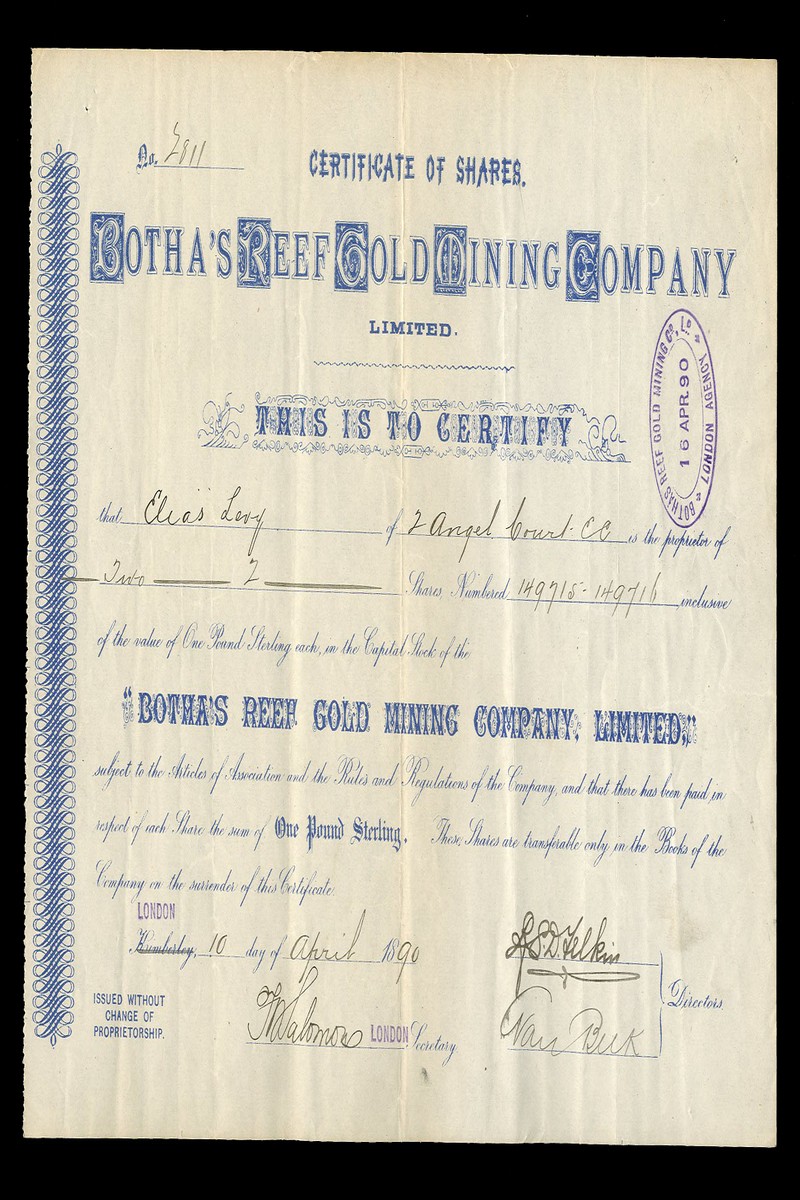 No. 2811
CERTIFICATE OF SHARES.
BOTHA'S REEF GOLD MINING COMPANY
LIMITED.
BOTHAS REEF GOLD MINING Co., Ld.
16 APR. 90
LONDON AGENCY
THIS IS TO CERTIFY
that Elias Levy of 2 Angel Court. EC is the proprietor of
Two 2 Shares, Numbered 149715 - 149716 inclusive
of the value of One Pound Sterling each, in the Capital Stock of the
"BOTHA'S REEF GOLD MINING COMPANY, LIMITED,"
subject to the Articles of Association and the Rules and Regulations of the Company, and that there has been paid in
respect of each Share the sum of One Pound Sterling. These Shares are transferable only in the Books of the
Company on the surrender of this Certificate.
LONDON
Kimberley, 10 day of April 1890
ISSUED WITHOUT
CHANGE OF
PROPRIETORSHIP.
Salomon LONDON Secretary.
Van Beek
Directors.